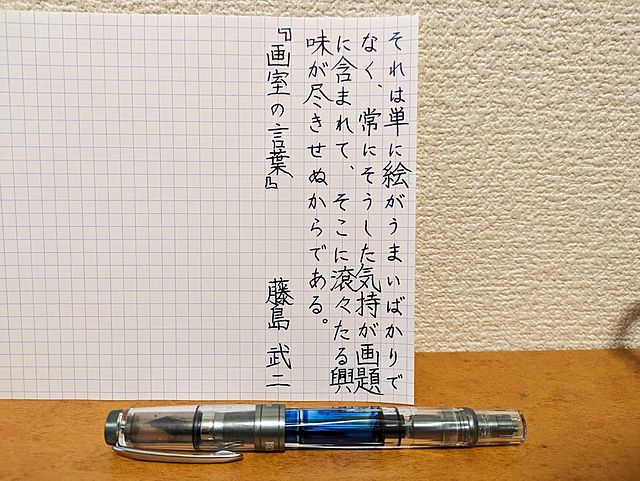 それは単に絵がうまいばかりで
なく、常にそうした気持が画題
に含まれて、そこに滾々たる興
味が尽きせぬからである。
『画室の言葉』 藤島 武二